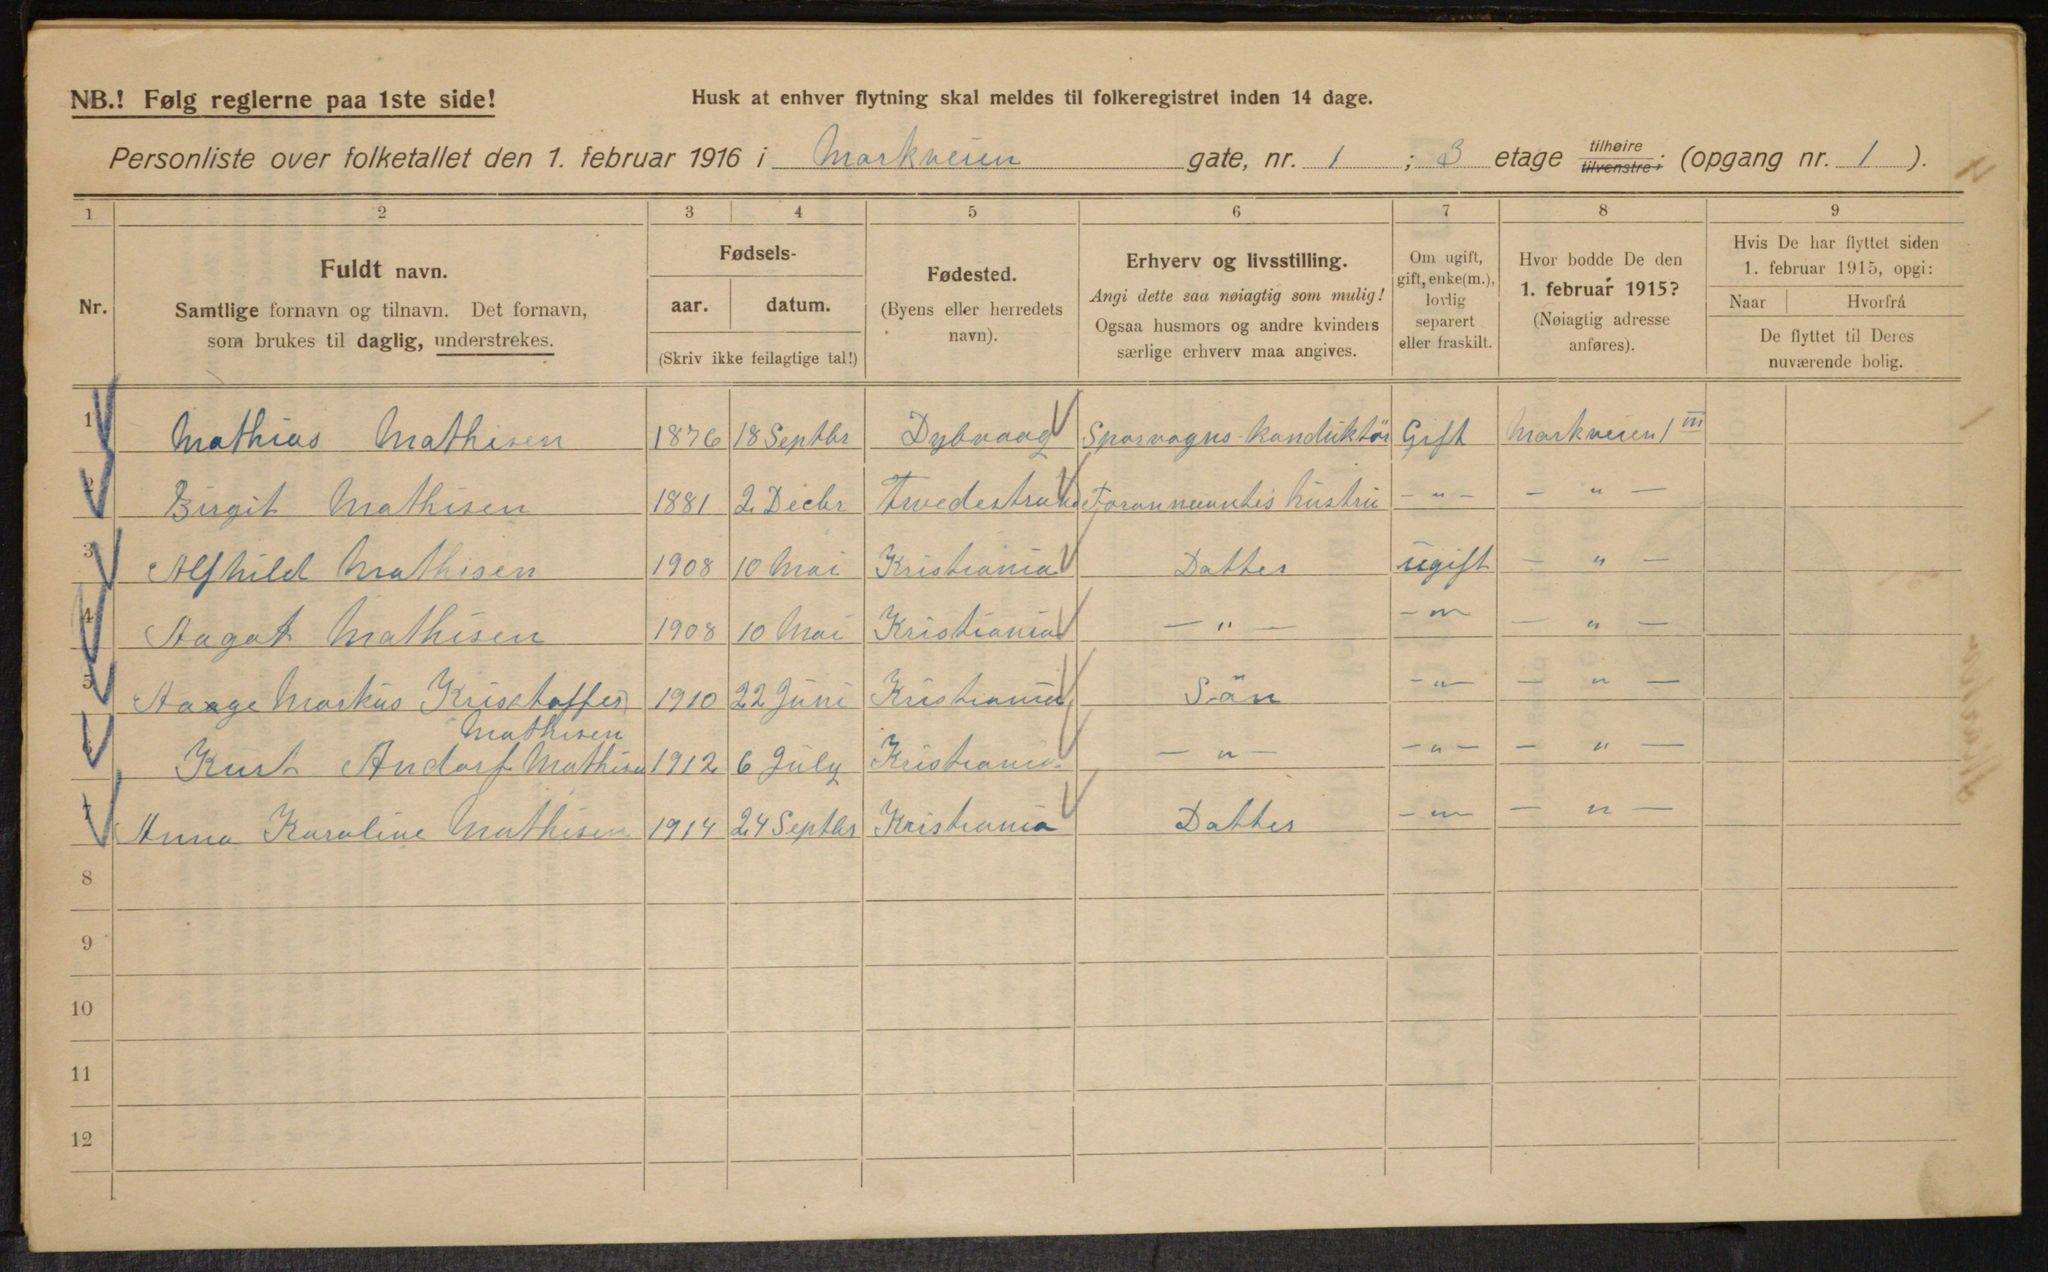 NB.! Følg reglerne paa 1ste side!
Husk at enhver flytning skal meldes til folkeregistret inden 14 dage.
Personliste over folketallet den 1. februar 1916 i Markveien gate, nr. 1 ; 3 etage tilhøire tilvenstre; (opgang nr. 1 ).
1 2 3 4 5 6 7 8 9
Nr.
Fuldt navn.
Samtlige fornavn og tilnavn. Det fornavn,
som brukes til daglig, understrekes.
Fødsels-
aar. datum.
(Skriv ikke feilagtige tal!)
Fødested.
(Byens eller herredets
navn).
Erhyerv og livsstilling.
Angi dette saa nøiagtig som mulig!
Ogsaa husmors og andre kvinders
særlige erhverv maa angives.
Om ugift,
gift, enke(m.),
lovlig
separert
eller fraskilt.
Hvor bodde De den
1. februar 1915?
(Nøiagtig adresse
anføres).
Hvis De har flyttet siden
1. februar 1915, opgi:
Naar Hvorfrå
De flyttet til Deres
nuværende bolig.
1 Mathias Mathisen 1876 18 Septbr Dybvaag Sporvogns-konduktör Gift Markveien 1 III
2 Birgit Mathisen 1881 2 Decbr Tvedestrand Forannævntes hustru – " – – " –
3 Alfhild Mathisen 1908 10 Mai Kristiania Datter ugift – " –
4 Aagot Mathisen 1908 10 Mai Kristiania – " – – " – – " –
5 Aage Markus Kristoffer 1910 22 Juni Kristiania Sön – " – – " –
Mathisen
6 Kurt Andorf Mathisen 1912 6 July Kristiania – " – – " – – " –
7 Anna Karoline Mathisen 1914 24 Septbr Kristiania Datter – " – – " –
8
9
10
11
12